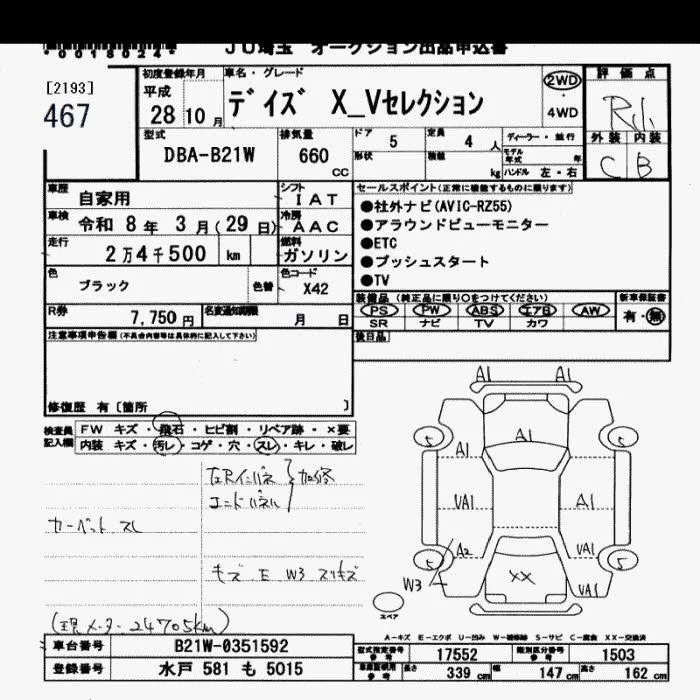 *0018024*
JU埼玉 オークション出品申込書
[2193]
467
初度登録年月
平成
28 10 月
車名・グレード
デイズ X_Vセレクション
2WD
4WD
評価点
外装 内装
C B
型式
DBA-B21W
排気量
660 CC
ドア 5
定員 4 人
形状
積載 kg
ディーラー・並行
モデル年式 年
ハンドル 左・右
車歴
自家用
シフト
IAT
車検
令和 8 年 3 月(29 日)
冷房
AAC
走行
2万4千500 km
燃料
ガソリン
色
ブラック
色替
色コード
X42
R券
7,750 円
名変通知期限
月 日
セールスポイント(正常に機能するものに限ります)
●社外ナビ(AVIC-RZ55)
●アラウンドビューモニター
●ETC
●プッシュスタート
●TV
装備品 (純正品に限り○をつけてください)
新車保証書
PS PW ABS エアB AW
SR ナビ TV カワ
有・無
後日品
注意事項申告欄(不具合内容等は具体的に記入して下さい)
修復歴 有〔箇所 〕
検査員記入欄
FW キズ・飛石・ヒビ割・リペア跡・×要
内装 キズ・汚レ・コゲ・穴・スレ・キレ・破レ
エンドパネル
カーペット スレ
キズ E W3 スリキズ
(現メーター24705km)
A1 A1
A1
5 5
A1
VA1 A1
A2 VA1
5 5
W3
XX
VA1
スペア
A-キズ E-エクボ U-凹み W-補修跡 S-サビ C-腐食 XX-交換済
車台番号
B21W-0351592
登録番号
水戸 581 も 5015
型式指定番号 参考
17552
類別区分番号 参考
1503
車庫証明用 参考
長さ 339 cm
幅 147 cm
高さ 162 cm